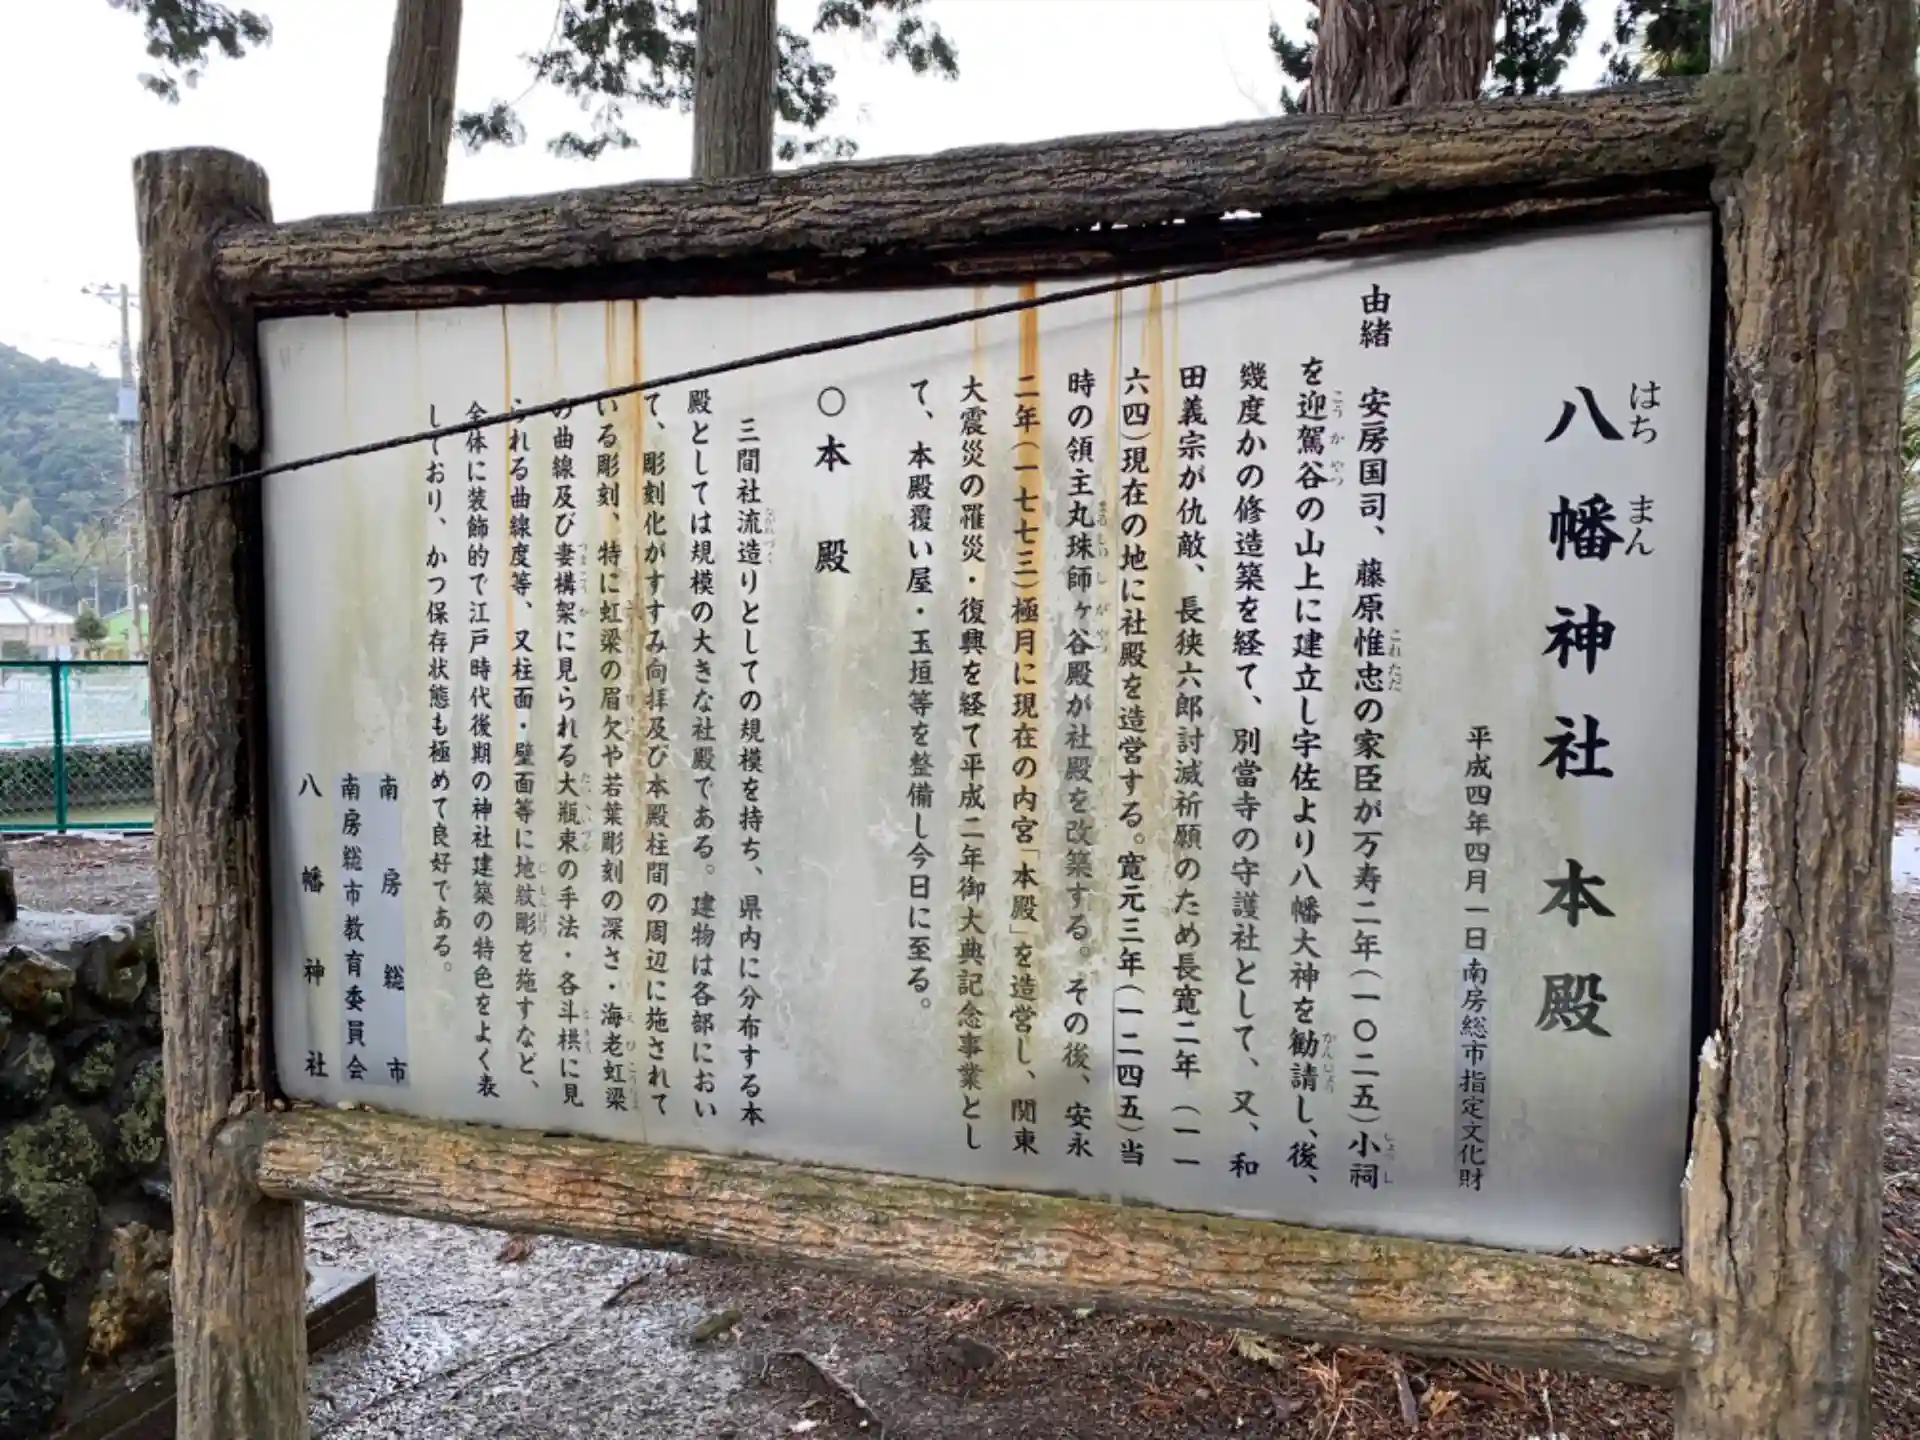 八幡神社 本殿
はち まん
平成四年四月一日南房総市指定文化財
由緒 安房国司、藤原惟忠の家臣が万寿二年(一〇二五)小祠
を迎駕谷の山上に建立し宇佐より八幡大神を勧請し、後、
幾度かの修造築を経て、別當寺の守護社として、又、和
田義宗が仇敵、長狭六郎討滅祈願のため長寛二年(一一
六四)現在の地に社殿を造営する。寛元三年(一二四五)当
時の領主丸珠師ヶ谷殿が社殿を改築する。その後、安永
二年(一七七三)極月に現在の内宮「本殿」を造営し、関東
大震災の罹災・復興を経て平成二年御大典記念事業とし
て、本殿覆い屋・玉垣等を整備し今日に至る。
〇本 殿
三間社流造りとしての規模を持ち、県内に分布する本
殿としては規模の大きな社殿である。建物は各部におい
て、彫刻化がすすみ向拝及び本殿柱間の周辺に施されて
いる彫刻、特に虹梁の眉欠や若葉彫刻の深さ・海老虹梁
の曲線及び妻構架に見られる大瓶束の手法・各斗栱に見
られる曲線度等、又柱面・壁面等に地紋彫を施すなど、
全体に装飾的で江戸時代後期の神社建築の特色をよく表
しており、かつ保存状態も極めて良好である。
南房総市
南房総市教育委員会
八幡神社